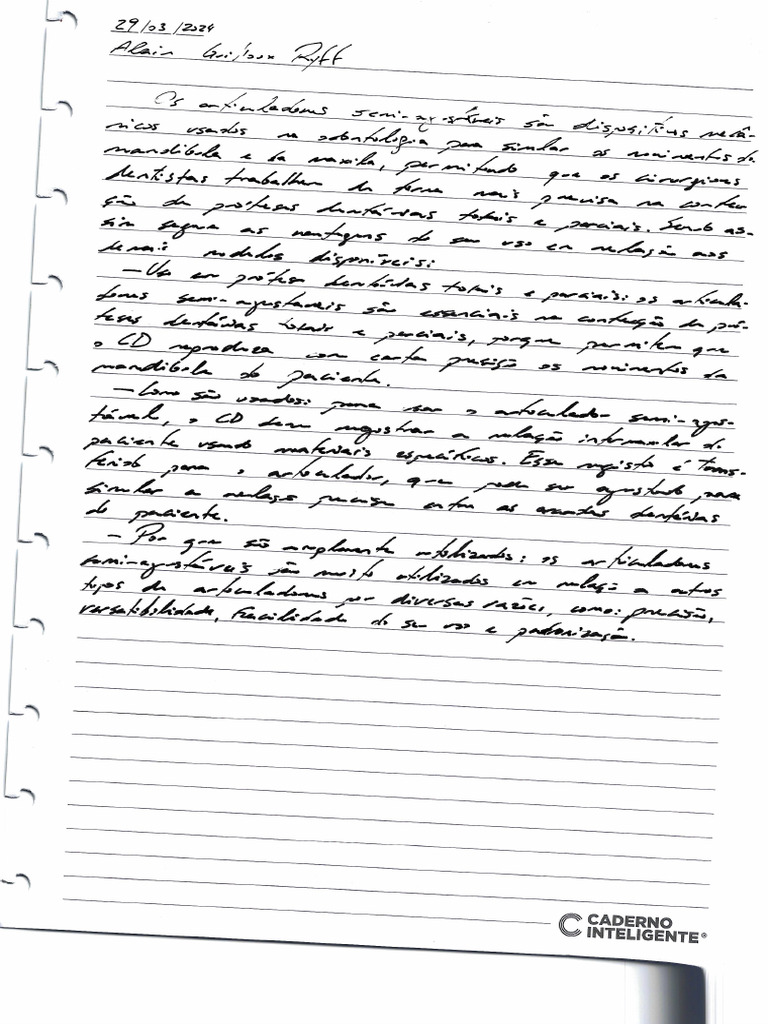 29/03/2024
Alain Ryff
Os articuladores semi-ajustáveis são dispositivos mecâ-
nicos usados na odontologia para simular os movimentos da
mandíbula e da maxila, permitindo que os cirurgiões
dentistas trabalhem de forma mais precisa na confec
ção de próteses dentárias totais e parciais. Sendo as-
sim segue as vantagens do seu uso em relação aos
demais modelos disponíveis:
- Uso em prótese dentárias totais e parciais: os articula-
dores semi-ajustáveis são essenciais na confecção de pró-
teses dentárias totais e parciais, porque permitem que
o CD reproduza com certa precisão os movimentos da
mandíbula do paciente.
- Como são usados: para usar o articulador semi-ajus-
tável, o CD deve registrar a relação intermaxilar do
paciente usando materiais específicos. Esse registo é trans-
ferido para o articulador, que pode ser ajustado para
simular a relação precisa entre as arcadas dentárias
do paciente.
- Por que são amplamente utilizados: os articuladores
semi-ajustáveis são muito utilizados em relação a outros
tipos de articuladores por diversas razões, como: precisão,
versatibilidade, facilidade do seu uso e padronização.
CADERNO
INTELIGENTE®